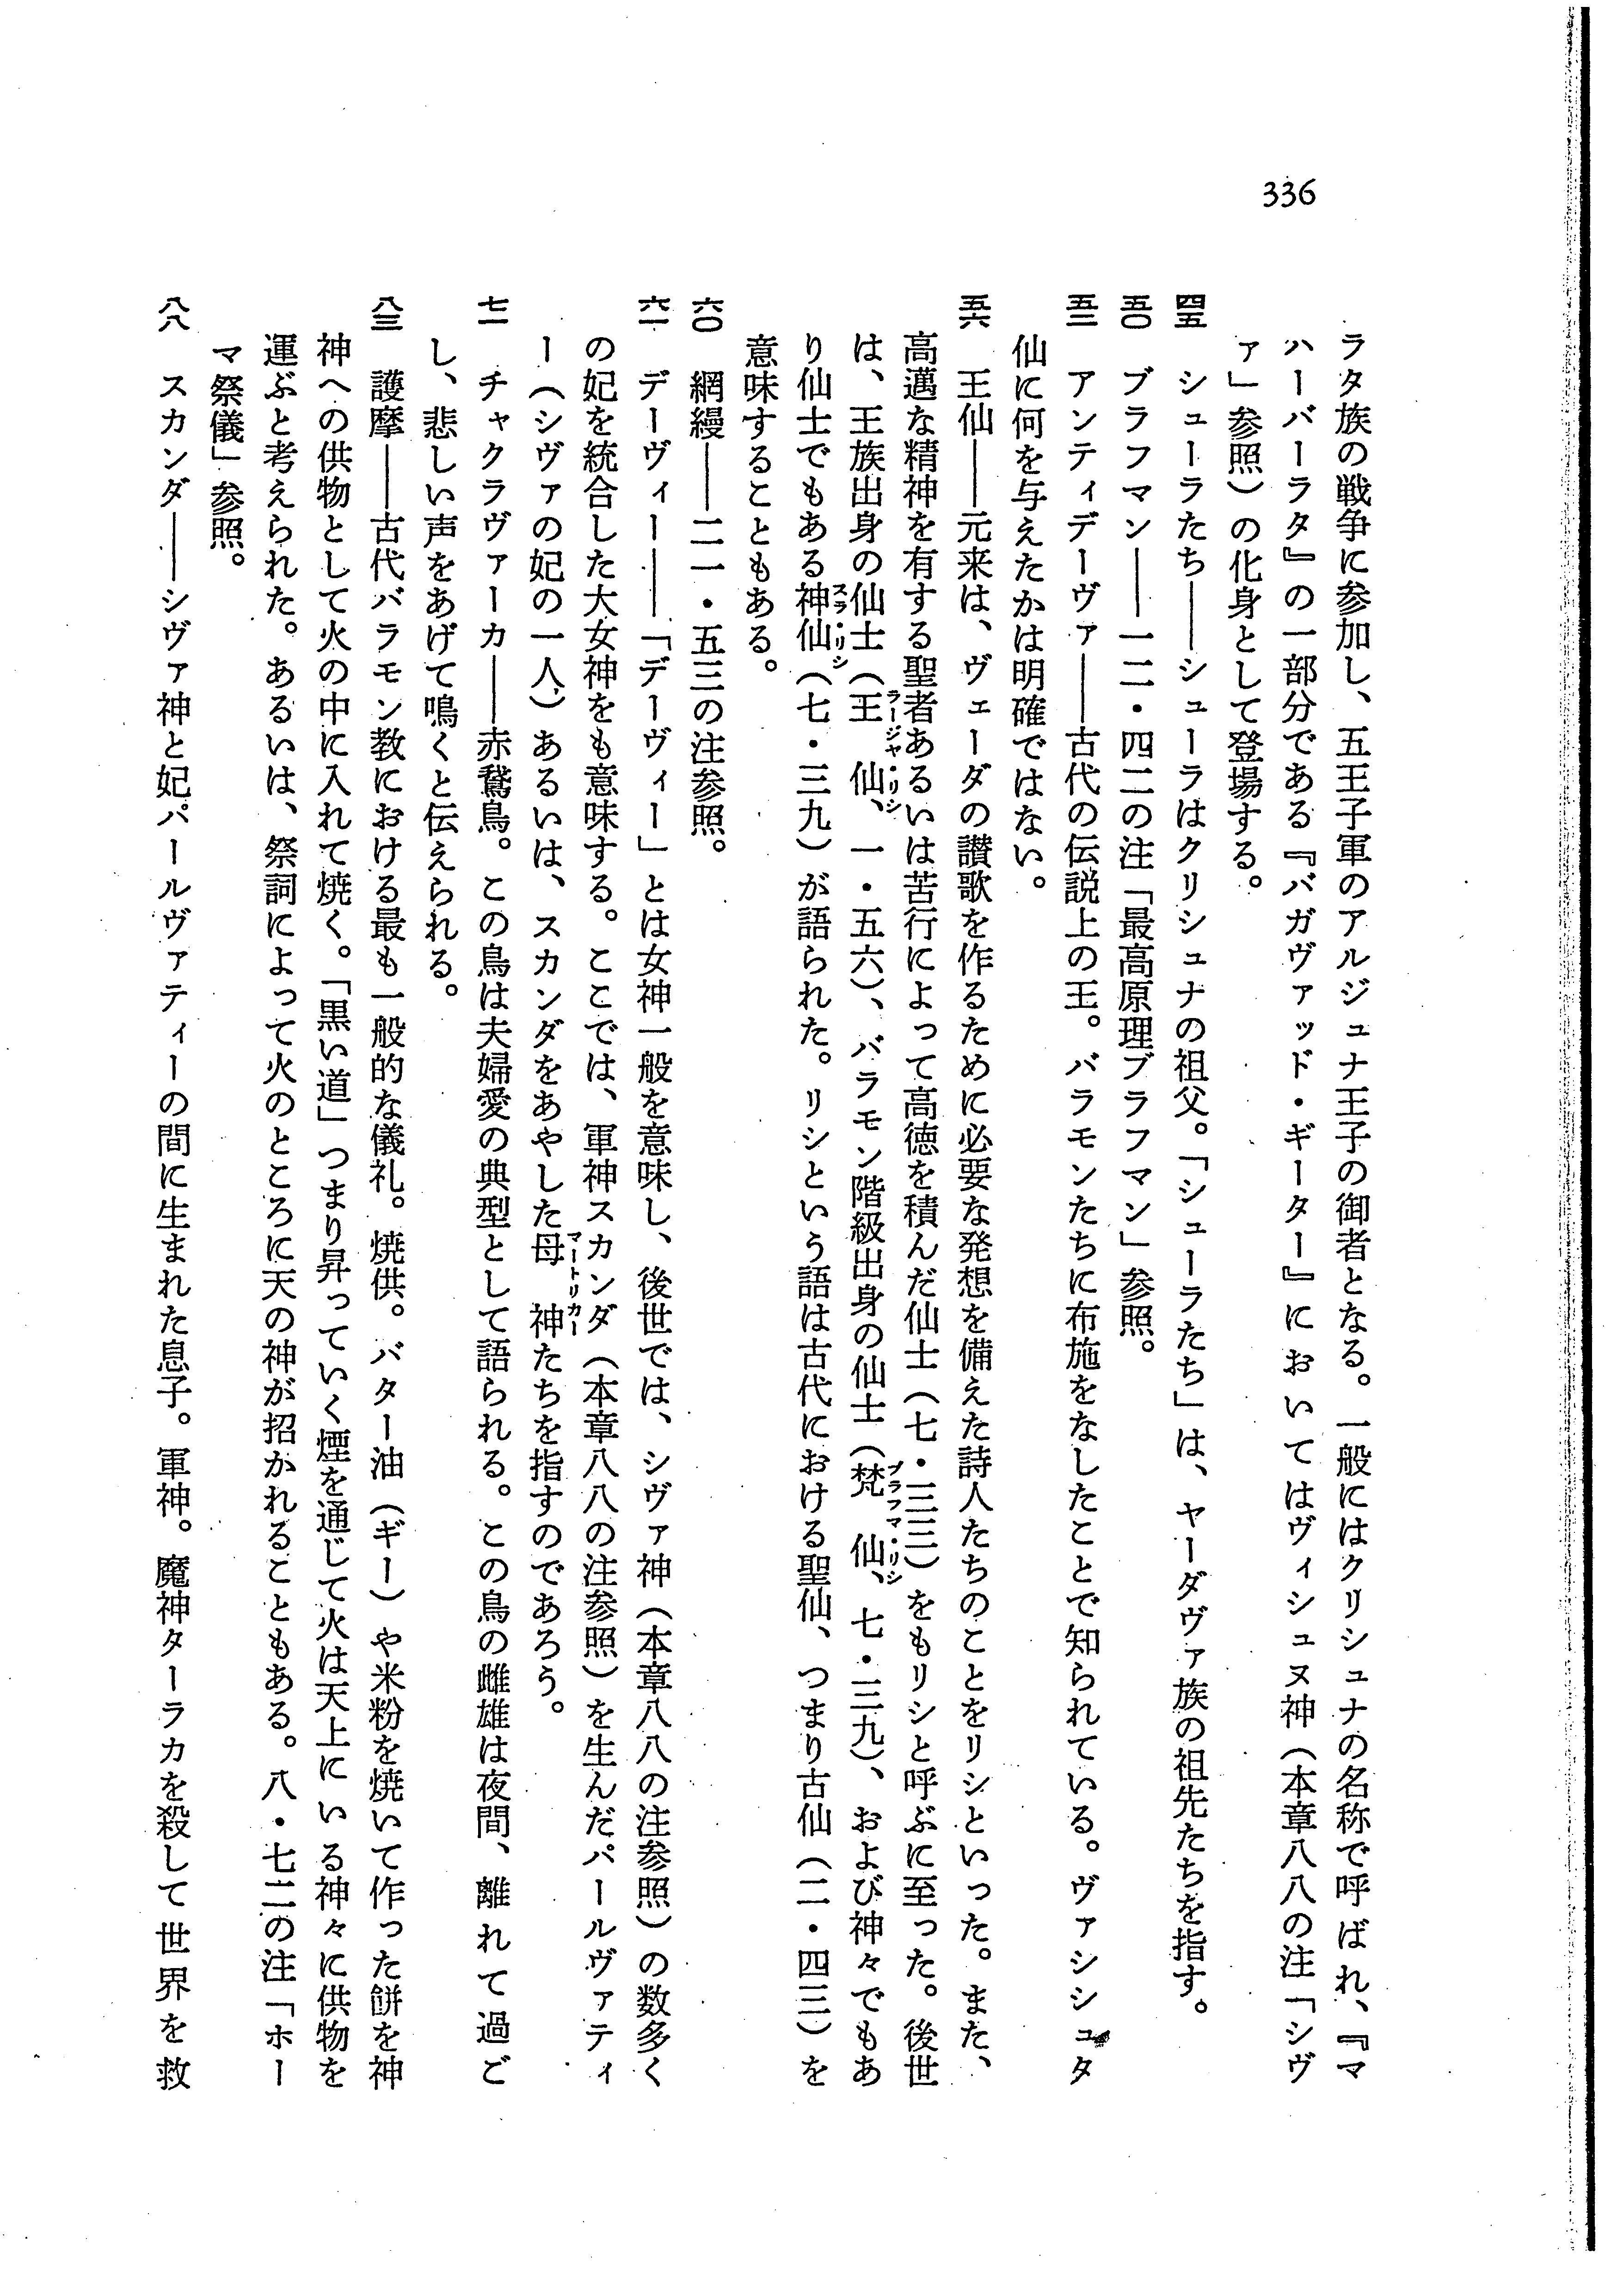 336
ラタ族の戦争に参加し、五王子軍のアルジュナ王子の御者となる。一般にはクリシュナの名称で呼ばれ、『マ
ハーバーラタ』の一部分である『バガヴァッド・ギーター』においてはヴィシュヌ神（本章八八の注「シヴ
ァ」参照）の化身として登場する。
四五　シューラたち――シューラはクリシュナの祖父。「シューラたち」は、ヤーダヴァ族の祖先たちを指す。
五〇　ブラフマン――一二・四二の注「最高原理ブラフマン」参照。
五三　アンティデーヴァ――古代の伝説上の王。バラモンたちに布施をなしたことで知られている。ヴァシシュタ
仙に何を与えたかは明確ではない。
五六　王仙――元来は、ヴェーダの讃歌を作るために必要な発想を備えた詩人たちのことをリシといった。また、
高邁な精神を有する聖者あるいは苦行によって高徳を積んだ仙士（七・三三）をもリシと呼ぶに至った。後世
は、王族出身の仙士（王仙ラージャ・リシ、一・五六）、バラモン階級出身の仙士（梵仙ブラフマ・リシ、七・三九）、および神々でもあ
り仙士でもある神仙スラ・リシ（七・三九）が語られた。リシという語は古代における聖仙、つまり古仙（二・四三）を
意味することもある。
六〇　網縵――二一・五三の注参照。
六一　デーヴィー――「デーヴィー」とは女神一般を意味し、後世では、シヴァ神（本章八八の注参照）の数多く
の妃を統合した大女神をも意味する。ここでは、軍神スカンダ（本章八八の注参照）を生んだパールヴァティ
ー（シヴァの妃の一人）あるいは、スカンダをあやした母神マートリカーたちを指すのであろう。
七一　チャクラヴァーカ――赤鵞鳥。この鳥は夫婦愛の典型として語られる。この鳥の雌雄は夜間、離れて過ご
し、悲しい声をあげて鳴くと伝えられる。
八三　護摩――古代バラモン教における最も一般的な儀礼。焼供。バター油（ギー）や米粉を焼いて作った餅を神
神への供物として火の中に入れて焼く。「黒い道」つまり昇っていく煙を通じて火は天上にいる神々に供物を
運ぶと考えられた。あるいは、祭詞によって火のところに天の神が招かれることもある。八・七二の注「ホー
マ祭儀」参照。
八八　スカンダ――シヴァ神と妃パールヴァティーの間に生まれた息子。軍神。魔神ターラカを殺して世界を救